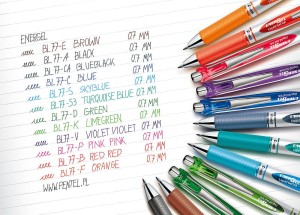 ENERGEL
BL77-E BROWN 07 MM
BL77-A BLACK 07 MM
BL77-CA BLUEBLACK 07 MM
BL77-C BLUE 07 MM
BL77-S SKYBLUE 07 MM
BL77-S3 TURQUOISE BLUE 07 MM
BL77-D GREEN 07 MM
BL77-K LIMEGREEN 07 MM
BL77-V VIOLET VIOLET 07 MM
BL77-P PINK PINK 07 MM
BL77-B RED RED 07 MM
BL77-F ORANGE 07 MM
WWW.PENTEL.PL